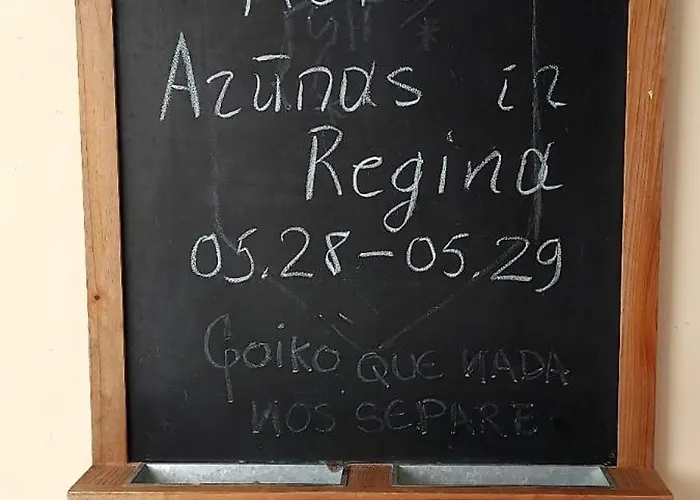 Arūnas ir
Regina
05.28-05.29
Goiko QUE NADA
NOS SEPARE